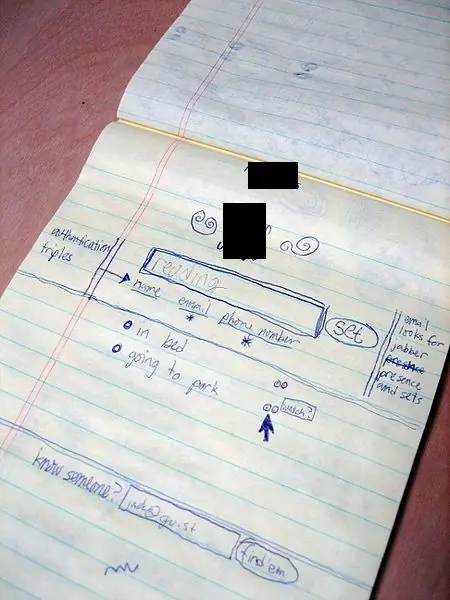 authentication
triples
reading
name
email
phone number
set
email
looks for
jabber
presence
and sets
in bed
going to park
watch?
know someone?
find'em